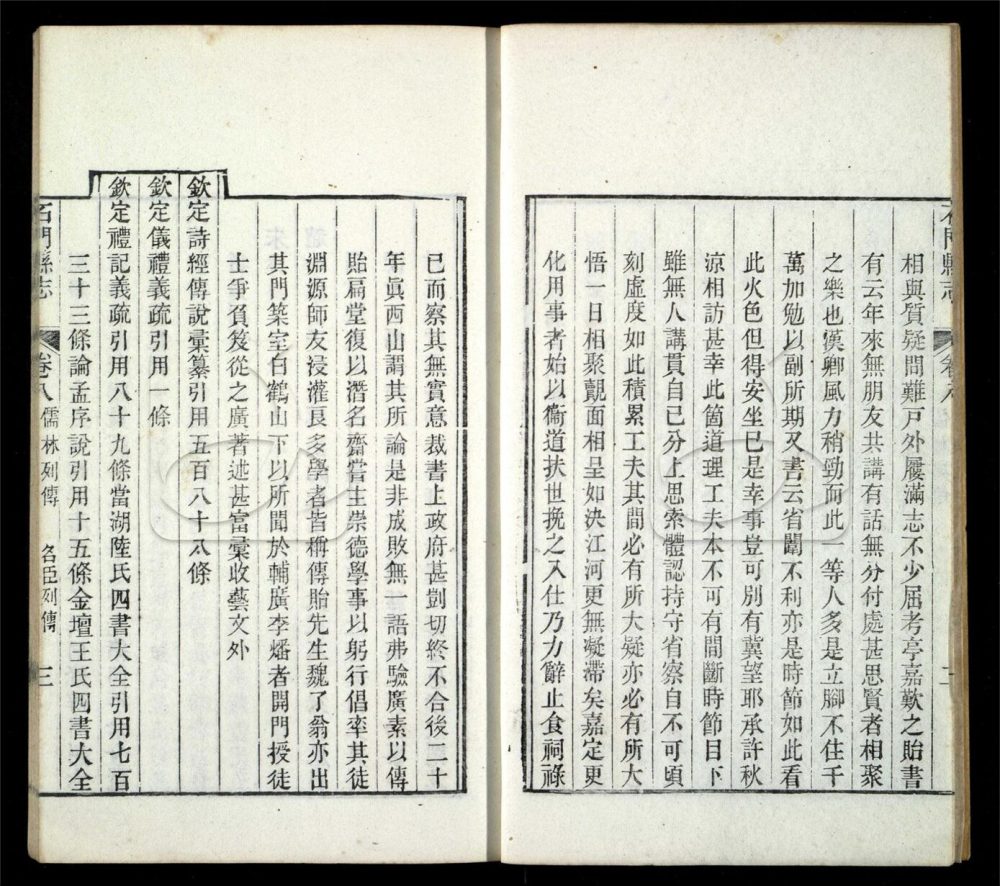 石門縣志 卷八 二
相與質疑問難戸外屨滿志不少屈考亭嘉歎之貽書
有云年來無朋友共講有話無分付處甚思賢者相聚
之樂也漢卿風力稍勁而此 等人多是立腳不住千
萬加勉以副所期又書云省闈不利亦是時節如此看
此火色但得安坐已是幸事豈可別有冀望耶承許秋
涼相訪甚幸此箇道理工夫本不可有間斷時節目下
雖無人講貫自已分上思索體認持守省察自不可頃
刻虛度如此積累工夫其間必有所大疑亦必有所大
悟一日相聚覿面相呈如決江河更無凝滯矣嘉定更
化用事者始以衞道扶世挽之入仕乃力辭止食祠祿
已而察其無實意裁書上政府甚剴切終不合後二十
年眞西山謂其所論是非成敗無一語弗驗廣素以傳
貽扁堂復以潛名齋嘗主崇德學事以躬行倡率其徒
淵源師友浸灌良多學者皆稱傳貽先生魏了翁亦出
其門築室白鶴山下以所聞於輔廣李燔者開門授徒
士爭負笈從之廣著述甚富彙收藝文外
欽定詩經傳說彙纂引用五百八十八條
欽定儀禮義疏引用一條
欽定禮記義疏引用八十九條當湖陸氏四書大全引用七百
三十三條論孟序說引用十五條金壇王氏四書大全
石門縣志 卷八 儒林列傳 名臣列傳 三